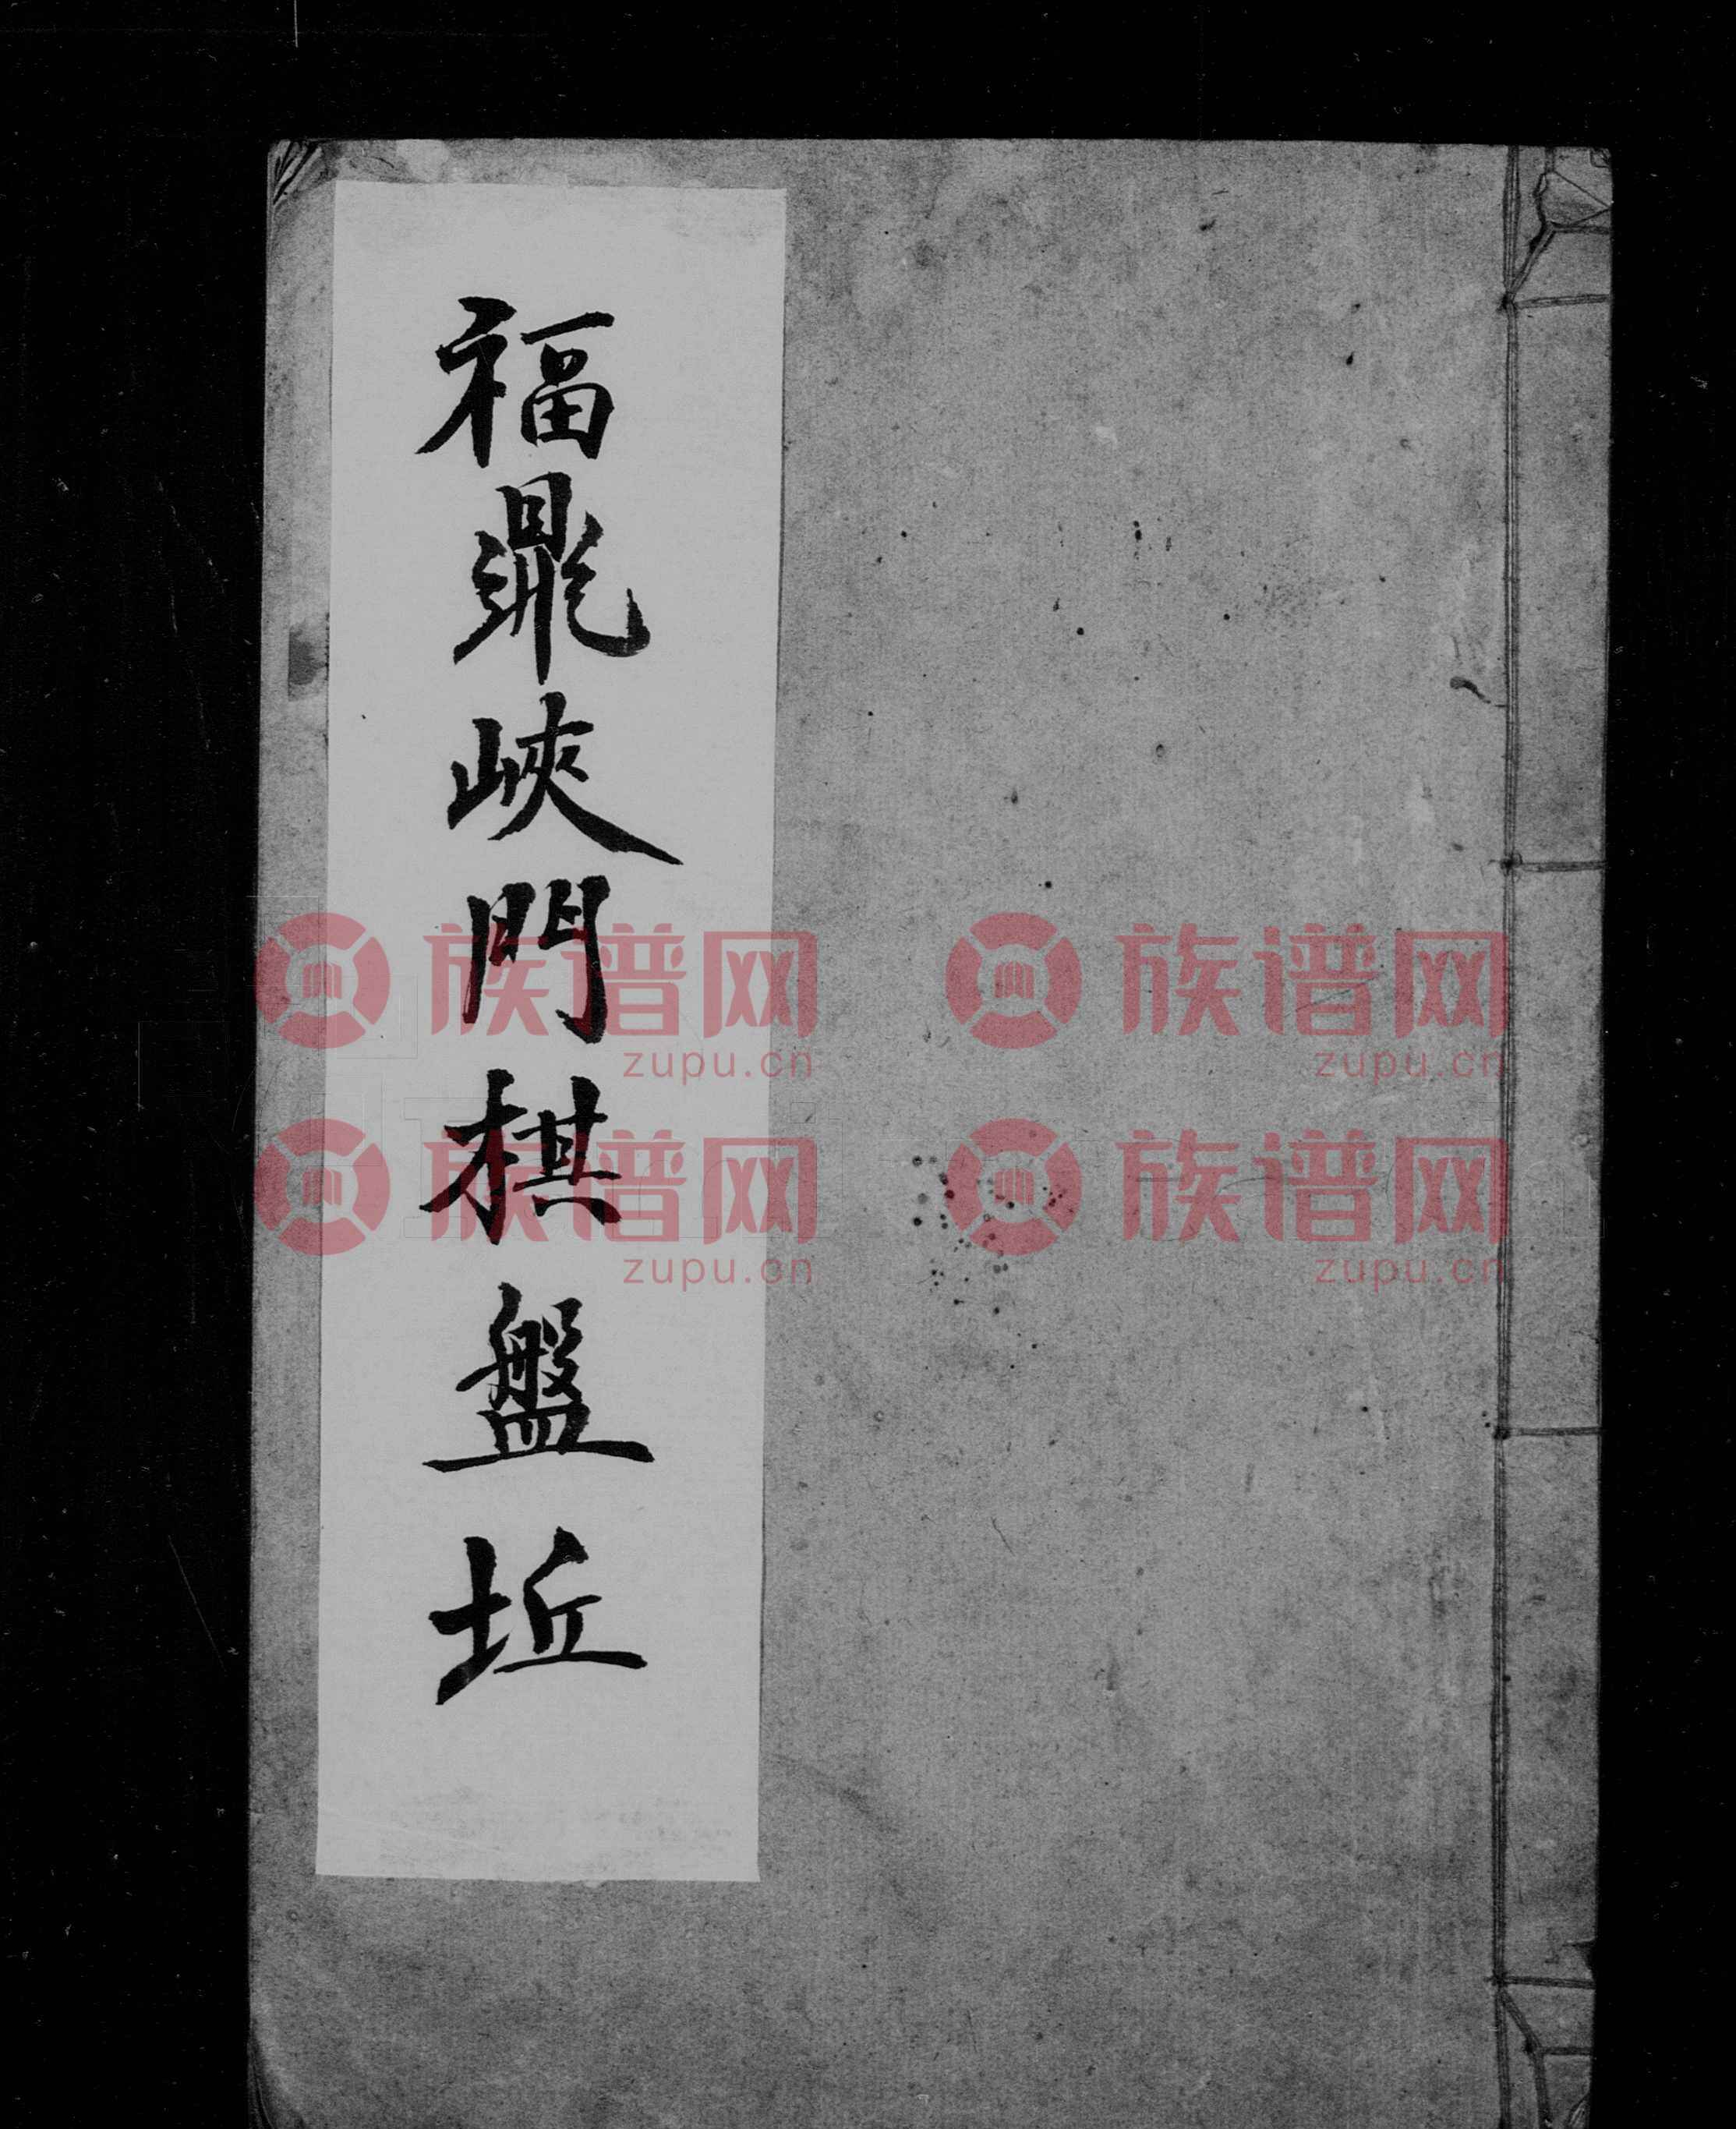 福鼎峽門棋盤坵
族谱网 族谱网
zupu.cn zupu.cn
族谱网 族谱网
zupu.cn zupu.cn